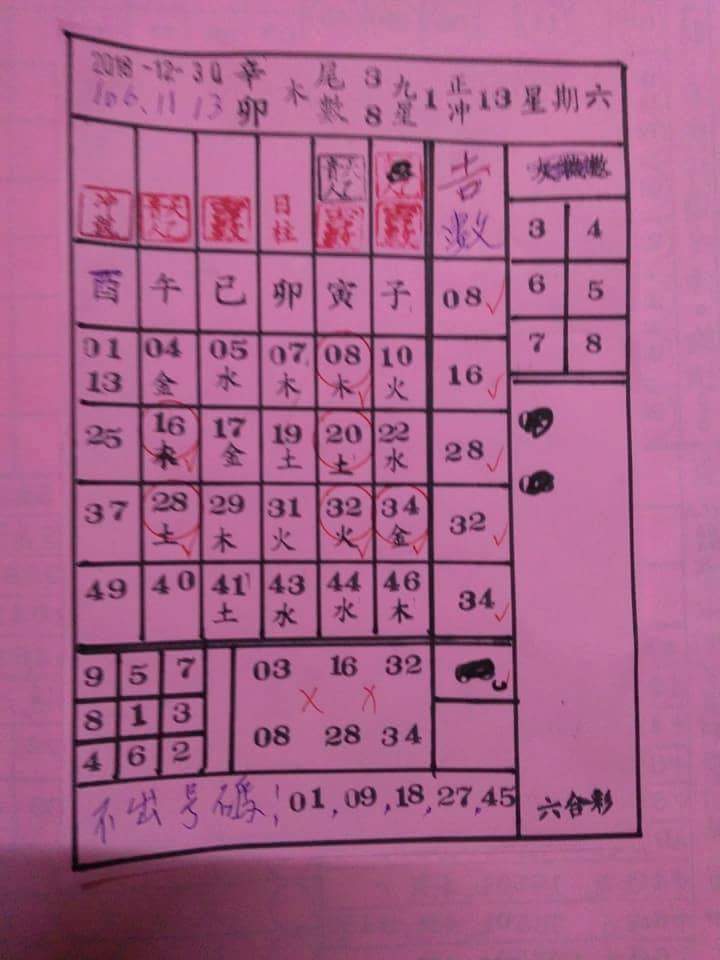 2018-12-30 辛卯 木 尾數 3 8 九星 1 正沖 13 星期六
106.11.13
沖數 貴人 日柱 貴人 吉數
酉 午 巳 卯 寅 子 08
3 4
6 5
7 8
01 04 05 07 08 10 16
13 金 水 木 木 火
25 16 17 19 20 22 28
木 金 土 土 水
37 28 29 31 32 34 32
土 木 火 火 金
49 40 41 43 44 46 34
土 水 水 木
9 5 7
8 1 3
4 6 2
03 16 32
08 28 34
不出号碼: 01, 09, 18, 27, 45
六合彩